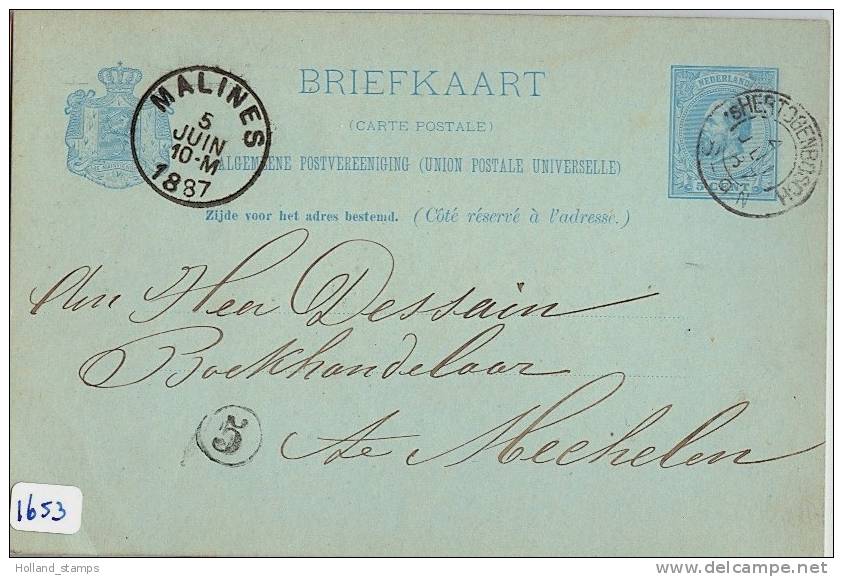 BRIEFKAART
(CARTE POSTALE)
ALGEMEENE POSTVEREENIGING (UNION POSTALE UNIVERSELLE)
Zijde voor het adres bestemd. (Côté réservé à l'adresse.)
MALINES
5
JUIN
10-M
1887
NEDERLAND
5 CENT
'SHERTOGENBOSCH
4
Den Heer Dessain
Boekhandelaar
te Mechelen
5
1653
Holland_stamps
www.delcampe.net